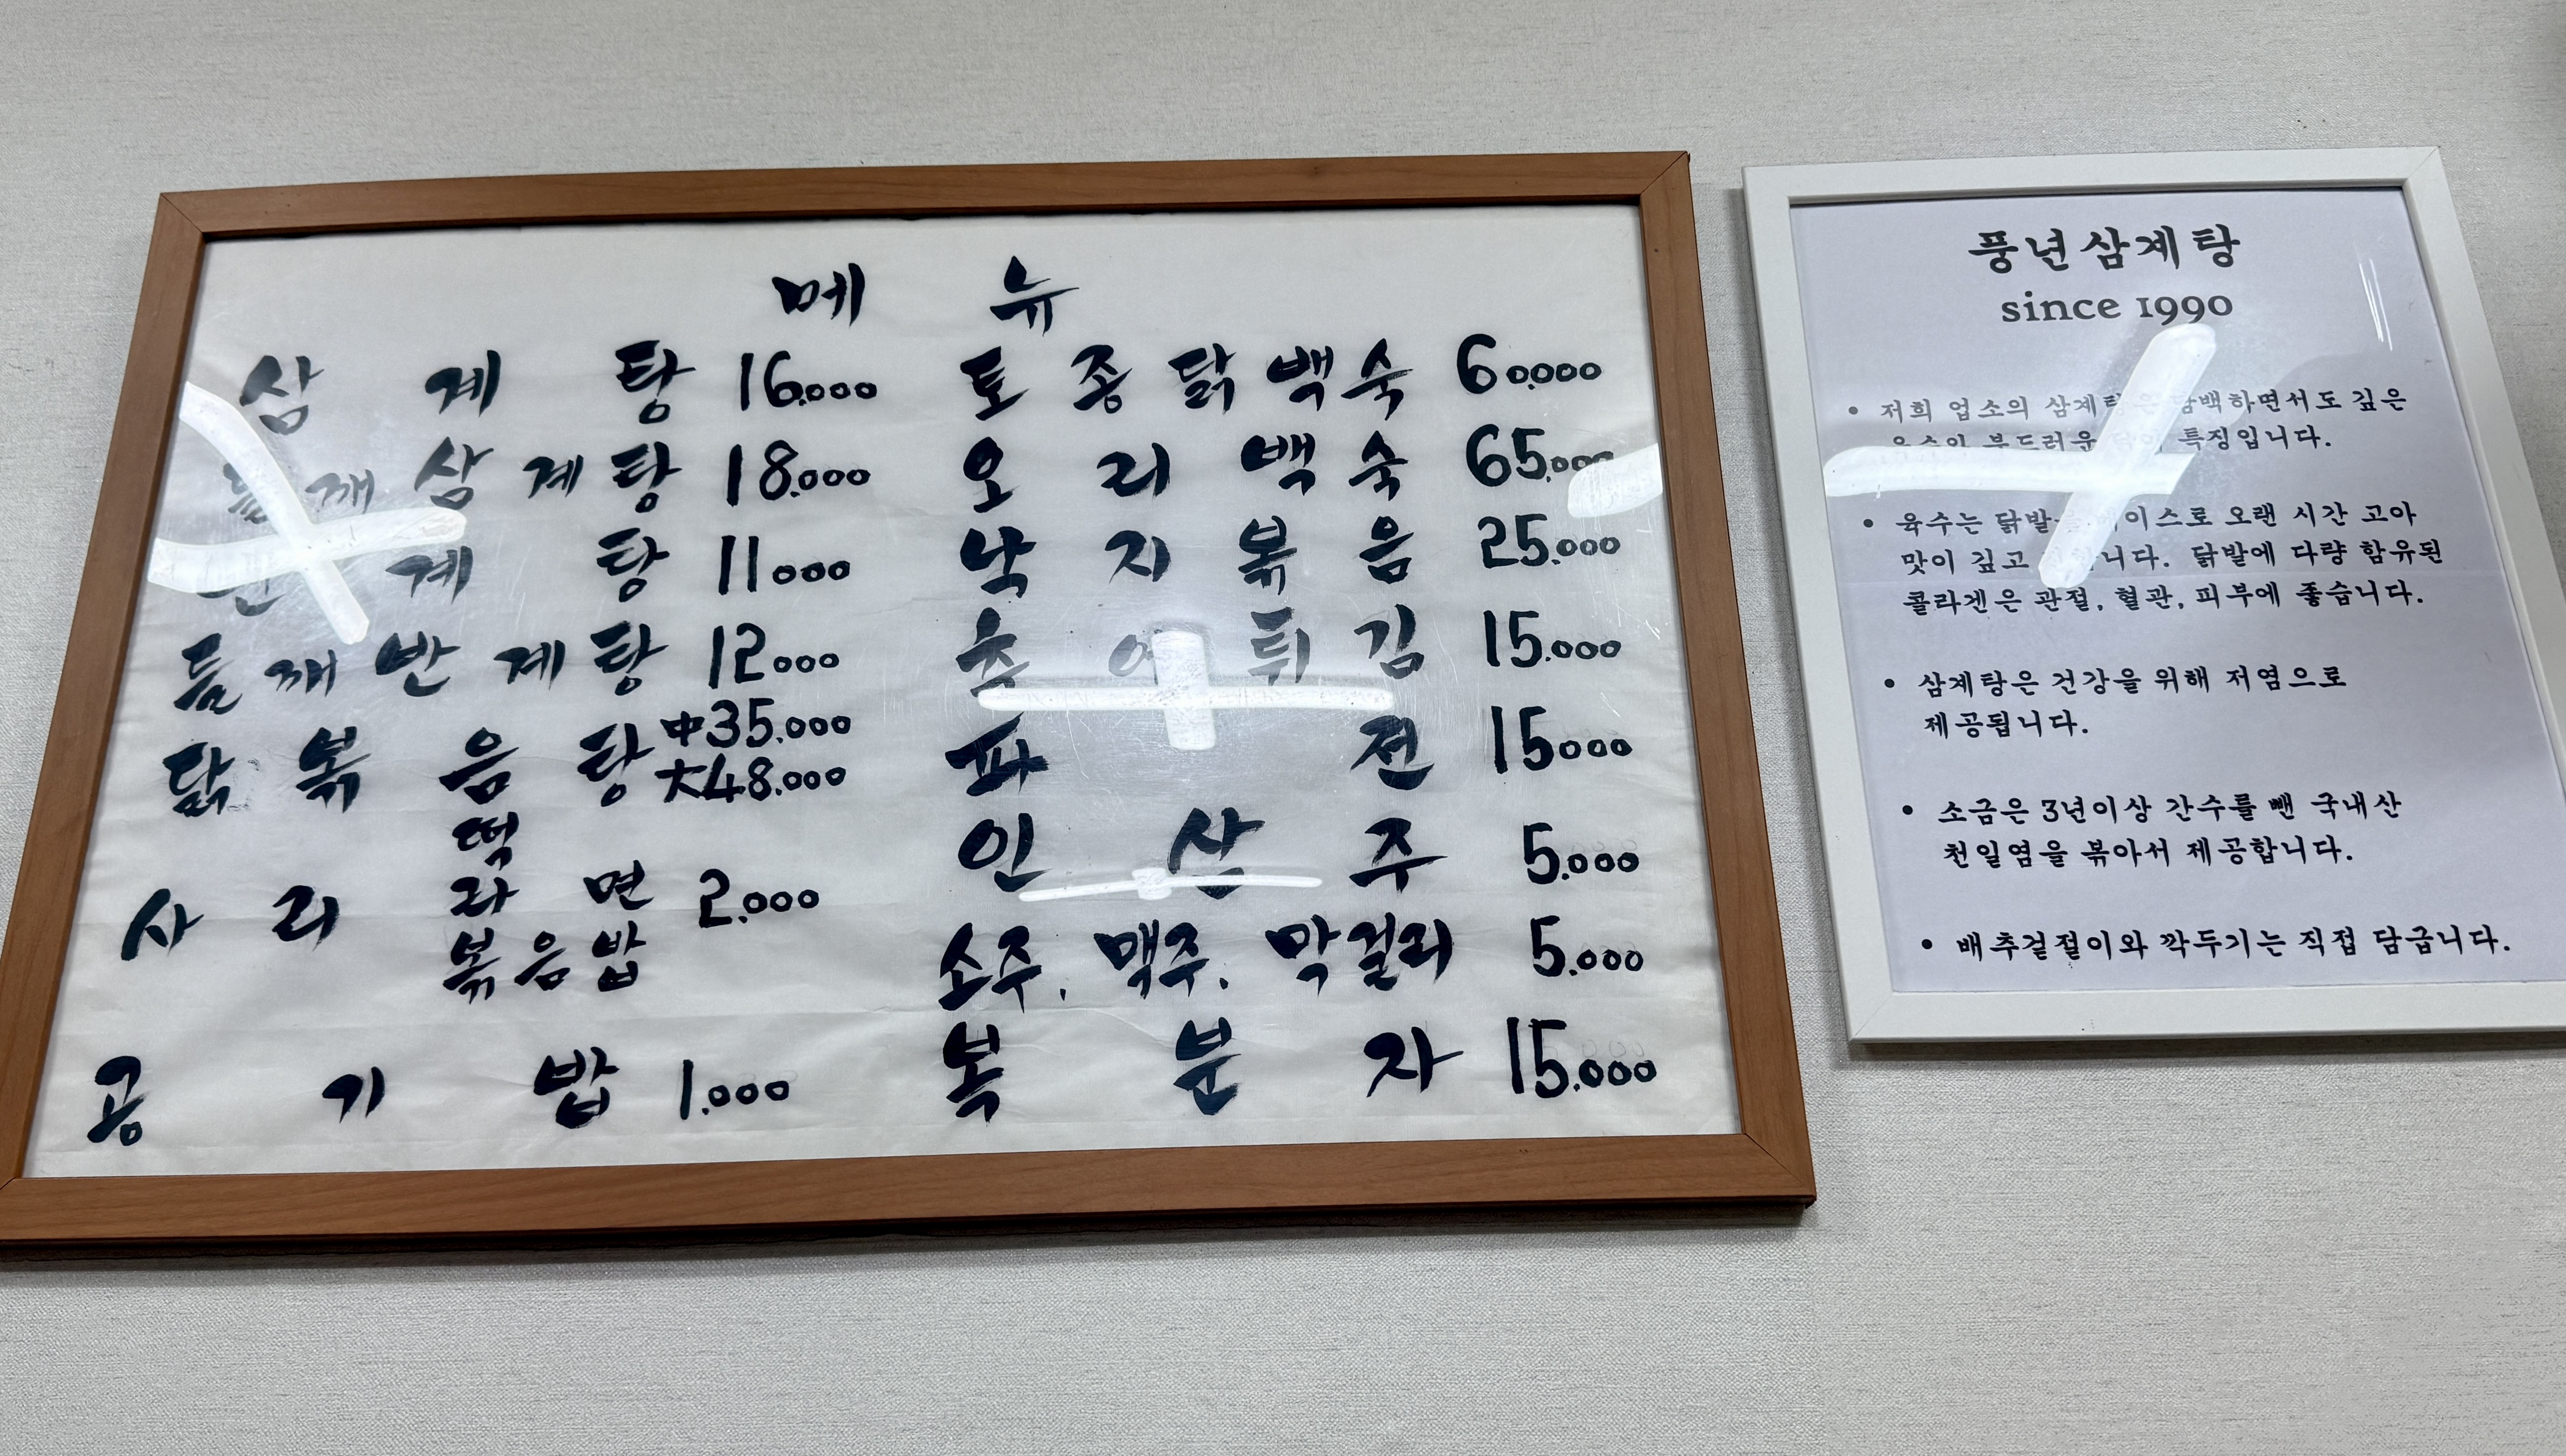 메뉴
삼계탕 16.000
들깨삼계탕 18.000
반계탕 11000
들깨반계탕 12000
닭볶음탕 中35.000
大48.000
떡
사리 라면 2.000
볶음밥
공기밥 1.000
토종닭백숙 60.000
오리백숙 65.000
낙지볶음 25.000
튀김 15.000
파전 15000
인산주 5.000
소주. 맥주. 막걸리 5.000
복분자 15.000
풍년삼계탕
since 1990
• 저희 업소의 삼계탕은 담백하면서도 깊은
육수와 부드러운 특징입니다.
• 육수는 닭발을 베이스로 오랜 시간 고아
맛이 깊고 닭발에 다량 함유된
콜라겐은 관절, 혈관, 피부에 좋습니다.
• 삼계탕은 건강을 위해 저염으로
제공됩니다.
• 소금은 3년이상 간수를 뺀 국내산
천일염을 볶아서 제공합니다.
• 배추겉절이와 깍두기는 직접 담급니다.